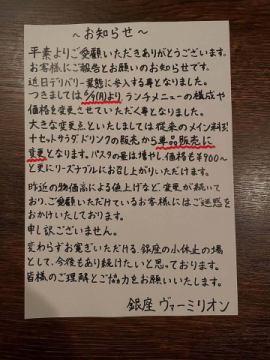 ～お知らせ～
平素よりご愛顧いただきありがとうございます。
お客様にご報告とお願いのお知らせです。
近日デリバリー業態に参入する事となりました。
つきましては6/9(月)より ランチメニューの構成や
価格を変更させていただく事となりました。
大きな変更点といたしましては従来のメイン料理
+セットサラダ、ドリンクの販売から単品販売に
変更となります。パスタの量は増やし価格も¥900〜
と更にリーズナブルにお召し上がりいただけます。
昨今の物価高による値上げなど、変更が続いて
おり、ご愛顧いただけているお客様にはご迷惑を
おかけいたしております。
申し訳ございません。
変わらずお寛ぎいただける、銀座の小休止の場
として、今後もあり続けたいと思っております。
皆様のご理解とご協力をお願いいたします。
銀座 ヴァーミリオン